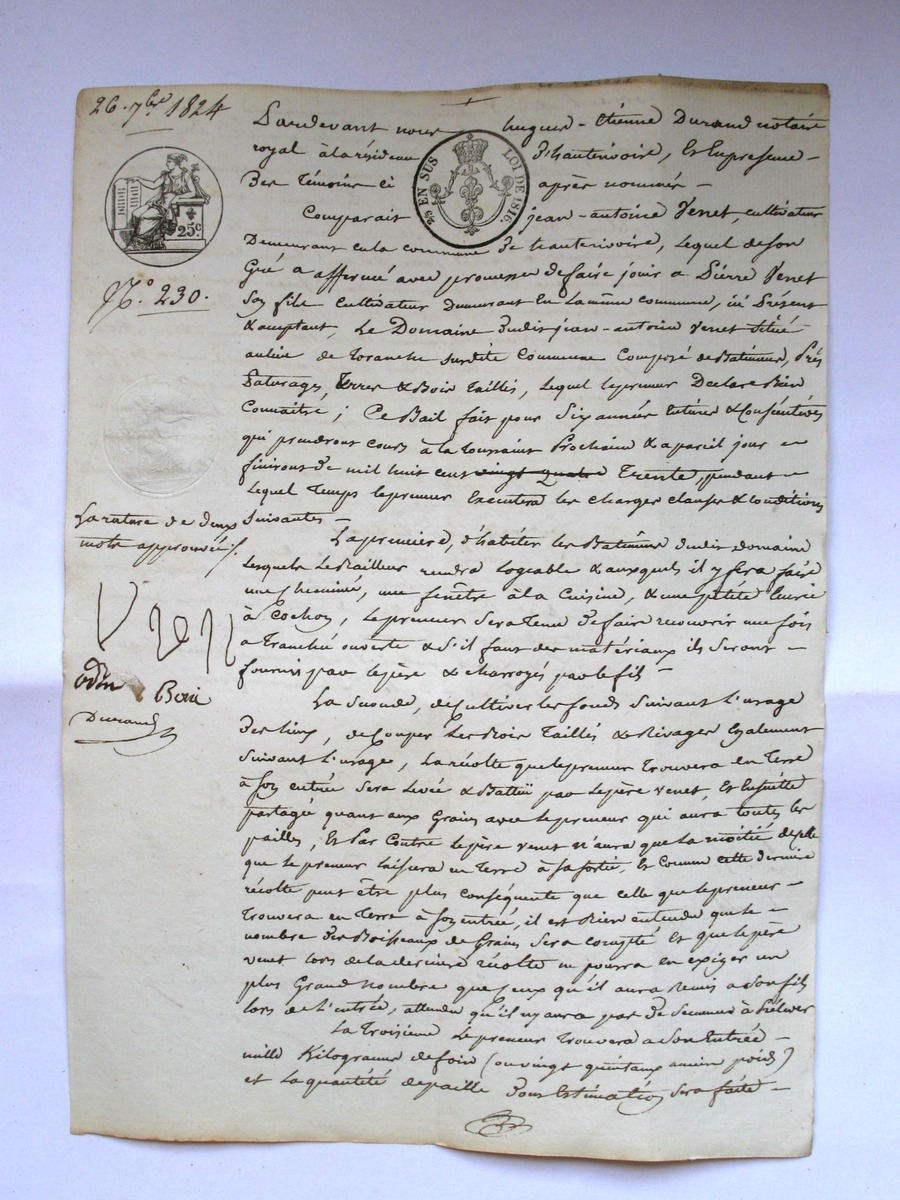 26. 7bre 1824
25c.
25 EN SUS LOI DE 1816.
N.o 230.
Pardevant nous hugues-Etienne Durand notaire
royal à la résidence d'hauterivoire, Et En presence
Des Témoins ci après nommés
Comparait jean-antoine Venet, cultivateur
Demeurant en la commune de hauterivoire, Lequel de son
Gré a affermé avec promesse de faire jouir a Pierre Venet
son fils cultivateur Demeurant En La même commune, ici Présent
& acceptant, Le Domaine dudit jean-antoine Venet situé
au lieu de Tranche susdite Commune Composé de Batimens, Prés
Paturages, Terres & Bois Taillis, Lequel le preneur Declare Bien
Connaitre; Ce Bail fait pour Six années Entières & Consécutives
qui prendront cours à la Toussaint Prochaine & a pareil jour
finiront de mil huit cent vingt quatre Trente, pendant
Lequel Temps le preneur Executera les charges clauses & conditions
Suivantes
La rature de deux
mots approuvée
La premiere, d'habiter les Batimens dudit domaine
Lesquels Le Bailleur rendra logeable & auxquels il y fera faire
une cheminée, une fenêtre à la Cuisine, & une petite Ecurie
à Cochon, Le preneur Sera Tenu de faire recouvrir une fois
a Tranchée ouverte & S'il faut des matériaux ils Seront
fournis par le père & charroyés par le fils
Durand
La Seconde, de Cultiver les fonds Suivant L'usage
Des lieux, de couper Les Bois Taillis & Rivages Egalement
Suivant L'usage, La récolte que le preneur Trouvera en Terre
à son entrée Sera Levée & Battue par le père Venet, Et Ensuite
partagé quant aux Grains avec le preneur qui aura toutes les
pailles, Et Par Contre le père Venet n'aura que La moitié de celle
que le preneur laissera en Terre à Sa Sortie, Et comme cette dernière
récolte peut être plus conséquente que celle que le preneur
Trouvera en Terre à son entrée, il est Bien entendu que le
nombre des Boisseaux de Grains Sera compté Et que le père
Venet lors de la dernière récolte ne pourra en exiger un
plus Grand Nombre que Ceux qu'il aura Remis a Son fils
lors de l'entrée, attendu qu'il n'y aura pas de Semence à Prélever
La Troisième Le preneur Trouvera a Son Entrée
mille Kilogramme de foin (ou vingt quintaux ancien poids)
et La quantité de paille dont Estimation Sera faite